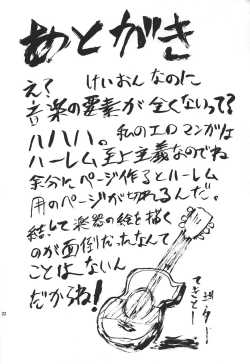 あとがき
え? けいおんなのに
音楽の要素が全くないって?
ハハハ。私のエロマンガは
ハーレム至上主義なのでね
余分にページ作るとハーレム
用のページが切れるんだ。
決して楽器の絵を描く
のが面倒だったなんて
ことはないん
だからね!
てきとー
ギター